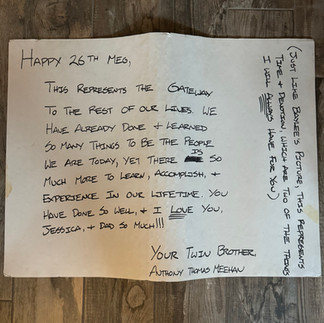 Happy 26th Meg,
This represents the Gateway
to the rest of our lives. We
have already done & learned
so many things to be the people
we are today, yet there is so
much more to learn, accomplish, &
experience in our lifetime. You
have done so well, & I love you,
Jessica, & Dad so much!!!
Your Twin Brother,
Anthony Thomas Meehan
(Just like Baylee's picture, this represents
time & devotion, which are two of the things
I will always have for you)